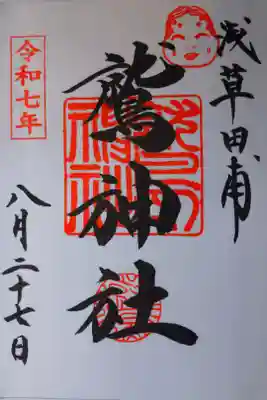 浅草田甫
鷲神社
令和七年
八月二十七日